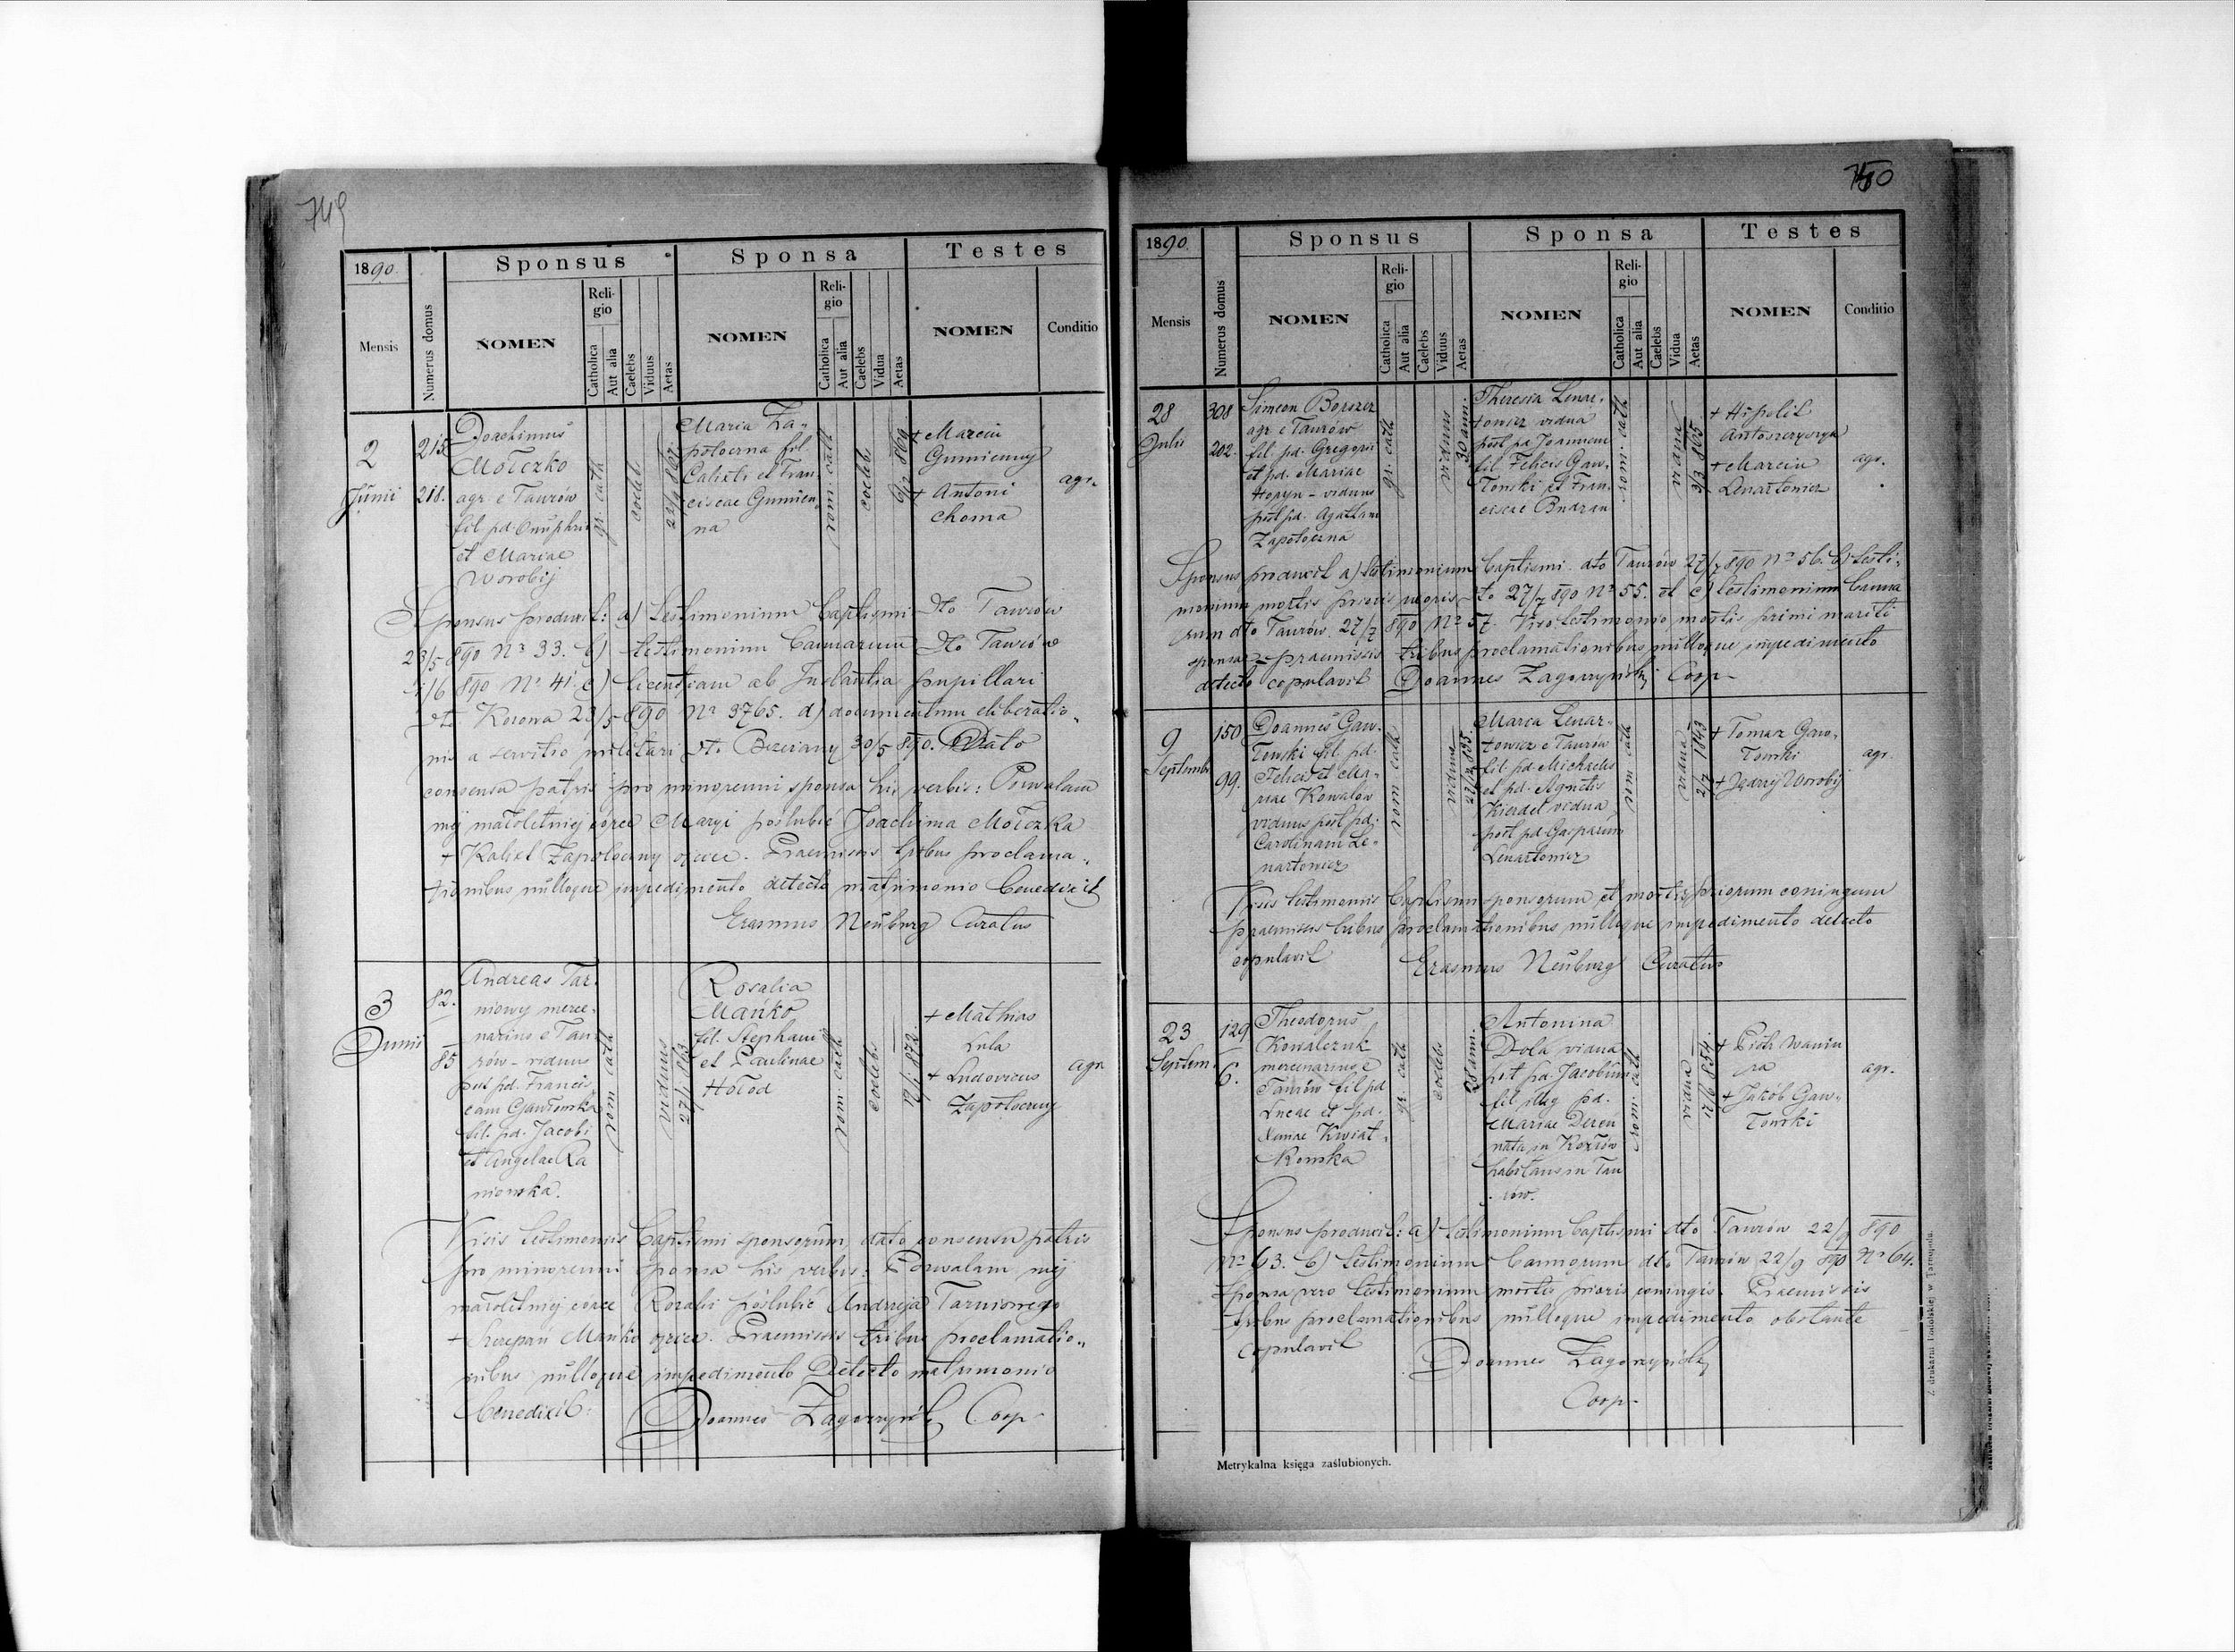 749
1890.
Sponsus
Sponsa
Testes
Mensis
Numerus domus
NOMEN
Religio
Catholica
Aut alia
Caelebs
Viduus
Aetas
NOMEN
Religio
Catholica
Aut alia
Caelebs
Vidua
Aetas
NOMEN
Conditio
2
Junii
215
218.
Joachimus
Mołczko
agr. e Taurów
fil pd. Onuphri
et Mariae
Worobij
gr. cath
coeleb.
Maria Za-
potoczna fil.
Calixti et Fran
ciscae Gumien
na
rom. cath
coelebs
+ Marcin
Gumienny
+ Antoni
Choma
agr.
Sponsus produxit: a) testimonium baptismi dto Taurów
23/5 890 Nr 33. b) testimonium bannorum dto Taurów
1/6 890 Nr 41 c) licentiam ab Instantia pupillari
dto Kozowa 23/5 890 Nr 3765. d) documentum eliberatio-
nis a servitio militari dto Brzeżany 30/5 890. Dato
consensu patris pro minorenni sponsa his verbis: Pozwalam
mej małoletniej córce Maryi poślubić Joachima Mołczka
+ Kalixt Zapotoczny ojciec. Praemissis tribus proclama-
tionibus nulloque impedimento detecto matrimonio benedixit
Erasmus Neuburg Curatus
3
Junii
82.
85
Andreas Tar-
niowy merce-
narius e Tau-
rów - viduus
post pd. Francis
cam Gawłowska
fil. pd. Jacobi
et Angelae Ra
niowska.
rom cath
viduus
27/11 863
Rosalia
Mańko
fil. Stephani
et Paulinae
Hołod
rom. cath
coelebs
19/1 872.
+ Mathias
Lula
+ Ludovicus
Zapotoczny
agr.
Visis testimoniis baptismi sponsorum, dato consensu patris
pro minorenni sponsa his verbis: Pozwalam mej
małoletniej córce Rozalii poślubić Andrzeja Tarniowego
+ Szczepan Mańko ojciec. Praemissis tribus proclamatio-
nibus nulloque impedimento detecto matrimonio
benedixit: Joannes Zagórzyński Coop.
750
1890.
Sponsus
Sponsa
Testes
Mensis
Numerus domus
NOMEN
Religio
Catholica
Aut alia
Caelebs
Viduus
Aetas
NOMEN
Religio
Catholica
Aut alia
Caelebs
Vidua
Aetas
NOMEN
Conditio
28
Julii
308
202.
Simeon Borszcz
agr. e Taurów
fil. pd. Gregorii
et pd. Mariae
Hopyn - viduus
post pd. Agatham
Zapotoczna
gr. cath
viduus
30 ann.
Theresia Lenar-
towicz vidua
post pd Joannem
fil Felicis Gaw-
łowski et Fran-
ciscae Budzan
rom. cath
vidua
3/3 865
+ Hipolit
Antoszczyszyn
+ Marcin
Lenartowicz
agr.
Sponsus produxit a) testimonium baptismi dto Taurów 27/7 890 Nr 56. b) testi-
monium mortis prioris uxoris dto 27/7 890 Nr 55. et c) testimonium banno
rum dto Taurów 27/7 890 Nr 57. Viso testimonio mortis primi mariti
sponsae - praemissis tribus proclamationibus nulloque impedimento
detecto copulavit Joannes Zagórzyński Coop.
9
Septemb.
150
99.
Joannes Gaw-
łowski fil. pd.
Felicis et Ma-
riae Kowalów
viduus post pd.
Carolinam Le-
nartowicz
rom cath
viduus
27/12 835.
Maria Lenar-
towicz e Taurów
fil. pd Michaelis
et pd. Agnetis
Kindel vidua
post pd Gasparum
Lenartowicz
rom cath
vidua
2/7 1843
+ Tomasz Gaw-
łowski
+ Jędrzej Worobij
agr.
Visis testimoniis baptismi sponsorum et mortis priorum coniugum
praemissis tribus proclamationibus nulloque impedimento detecto
copulavit Erasmus Neuburg Curatus
23
Septem.
129
6.
Theodorus
Kowalczuk
mercenarius e
Taurów fil pd
Lucae et pd.
Xeniae Kwiat-
kowska
gr. cath
coelebs
28 ann.
Antonina
Dola vidua
post pd Jacobum
fil illeg pd.
Mariae Dereń
nata in Kozłów
habitans in Tau
rów.
rom. cath
vidua
12/6 854
+ Piotr Waniu
ra
+ Jakób Gaw-
łowski
agr.
Sponsus produxit: a) testimonium baptismi dto Taurów 22/9 890
Nr 63. b) testimonium bannorum dto Taurów 22/9 890 Nr 64.
Sponsa vero testimonium mortis prioris coniugis. Praemissis
tribus proclamationibus nulloque impedimento obstante
copulavit Joannes Zagórzyński
Coop.
Metrykalna księga zaślubionych.
Z drukarni Podolskiej w Tarnopolu.